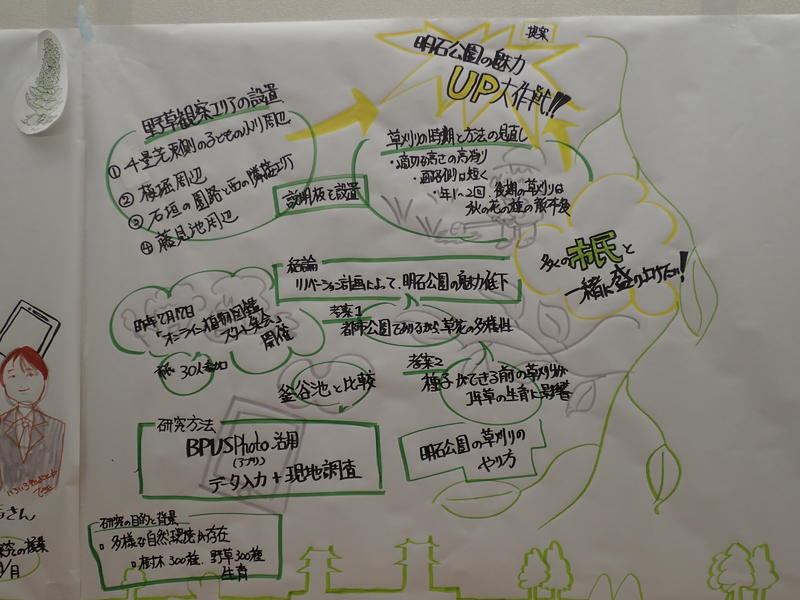 提案
明石公園の魅力
UP大作戦!!
野草観察エリアの設置
①千畳芝東側の子どもの入り周辺
②桜堀周辺
③石垣の園路と西の隣接エリア
④藤見池周辺
説明板を設置
草刈りの時期と方法の見直し
・適切な高さの高刈り
・年1~2回、後期の草刈りは
秋の花の種の散布後
多くの
市民と
一緒に盛り上げたい!
結論
リノベーション計画によって、明石公園の魅力低下
昨年7月17日
「オンライン植物図鑑
スタート集会」
開催
30人参加
考察1
都市公園であるが、草花の多様性
釜谷池と比較
考察2
種子ができる前の草刈りが
1年草の生育に影響
研究方法
BPUSPhoto活用
(アプリ)
データ入力+現地調査
明石公園の草刈りの
やり方
研究の目的と背景
多様な自然環境が存在
樹木300種、野草300種
生育
さん
1/月